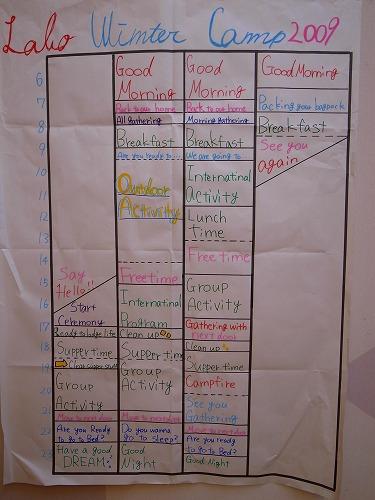 Labo Winter Camp 2009
6
7
8
9
10
11
12
13
14
15
16
17
18
19
20
21
22
23
Say
Hello!!
Start
Ceremony
Ready to lodge life
Supper time
Group
Activity
Move to next door
Are you Ready
to go to Bed?
Have a good
DREAM
Good
Morning
Back to our home
All gathering
Breakfast
Are you ready to...
Outdoor
Activity
Free time
Internatinal
Program
Clean up
Supper time
Group
Activity
Move to next door
Do you wanna
go to sleep?
Good
Night
Good
Morning
Back to our home
Morning gathering
Breakfast
We are going to
Internatinal
Activity
Lunch
time
Free time
Group
Activity
Gathering with
next door
Clean up
Supper time
Campfire
See you
Gathering
Move to next door
Are you ready
to go to Bed?
Good Night
Good Morning
Packing your bagpack
Breakfast
See you
again